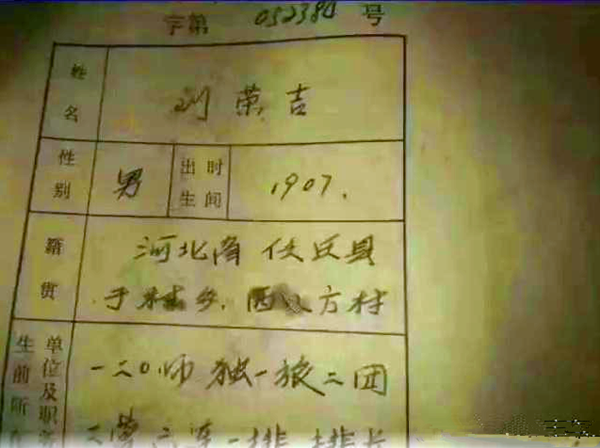 字第 052384 号
姓名 刘荣吉
性别 男 出生时间 1907.
籍贯 河北省任丘县
于村乡.西八方村
生前所在单位及职务 一二0师独一旅二团
三营六连一排排长